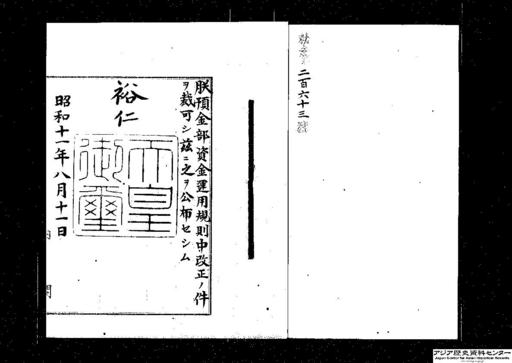 勅令二百六十三號
朕預金部資金運用規則中改正ノ件
ヲ裁可シ玆ニ之ヲ公布セシム
裕仁
天皇
御璽
昭和十一年八月十一日
内閣
アジア歴史資料センター
Japan Center for Asian Historical Records